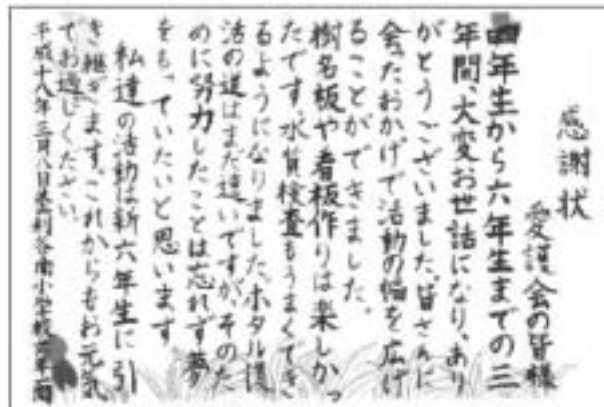 感謝状
愛護会の皆様
四年生から六年生までの三
年間、大変お世話になり、あり
がとうございました。皆さんに
会ったおかげで活動の幅を広げ
ることができました。
樹名板や看板作りは楽しかっ
たです。水質検査もうまくでき
るようになりました。ホタル復
活の道はまだ遠いですが、そのた
めに努力したことは忘れず夢
をもっていたいと思います
私達の活動は新六年生に引
き継ぎます。これからもお元気
でお過しください。
平成十八年三月八日 刈谷南小学校六年